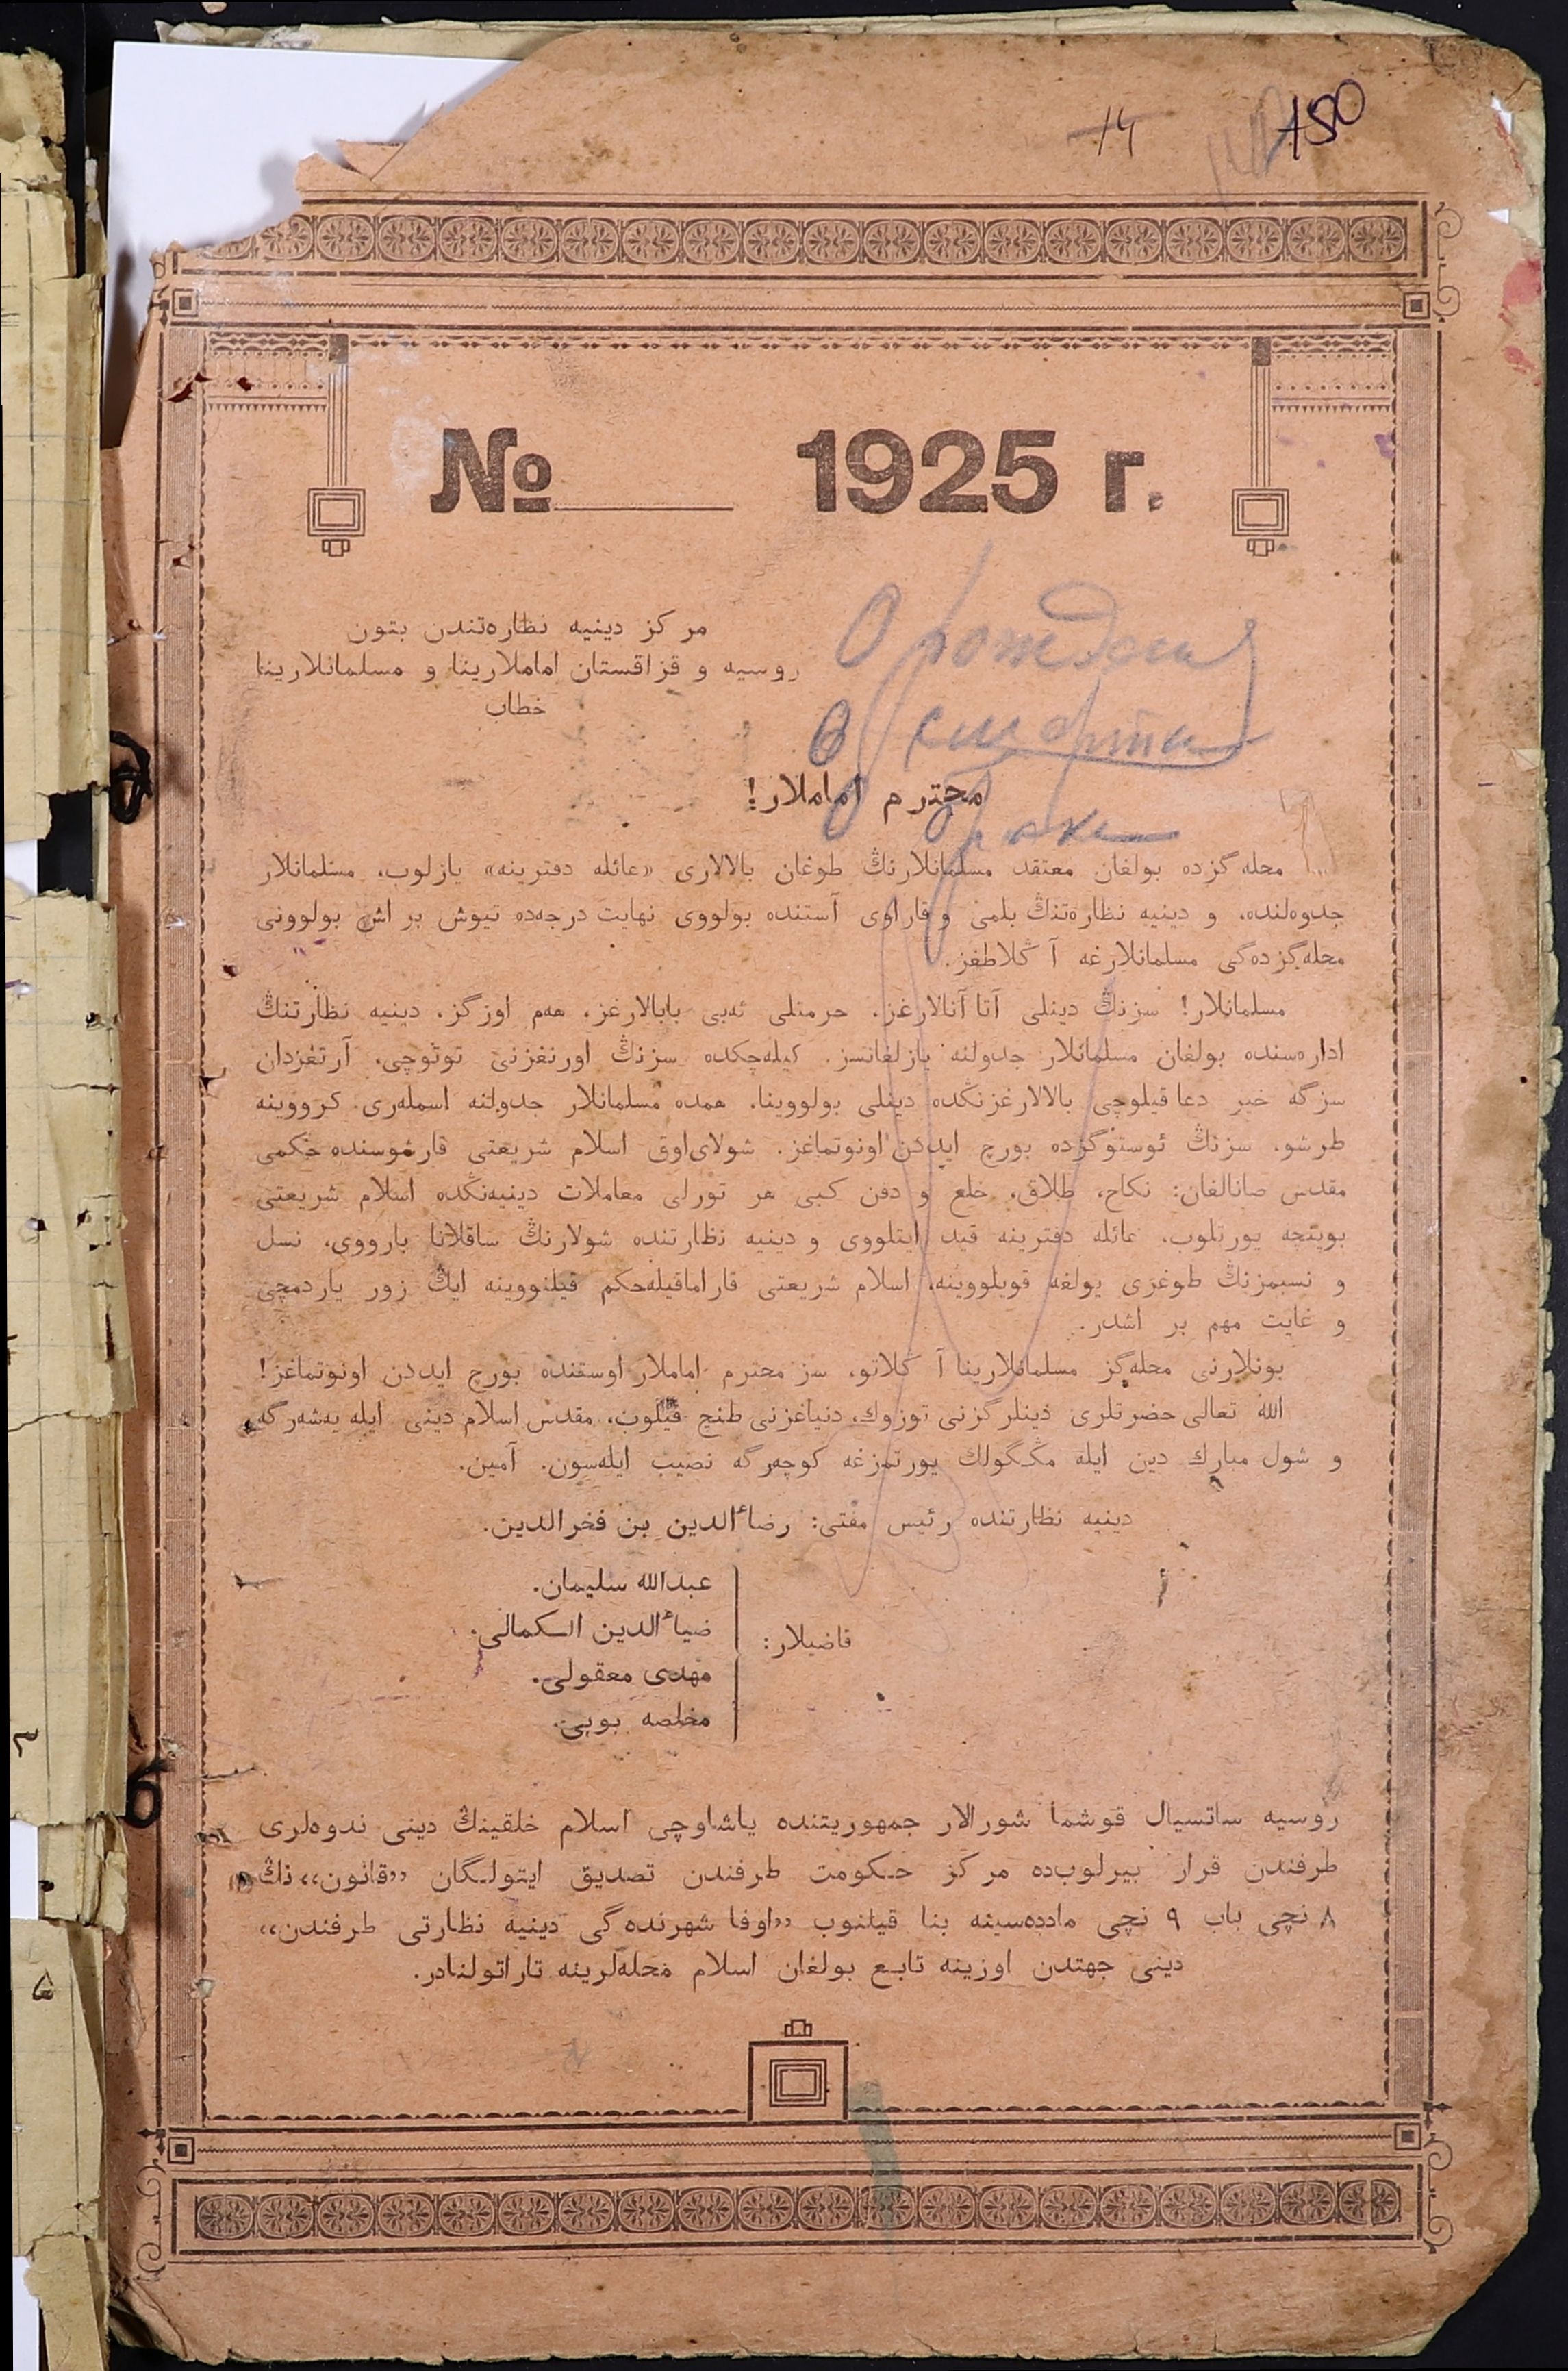 14
150
№ 1925 г.
О рождении
О смерти
браке
مركز دينيه نظاره‌تندن بتون
روسيه و قزاقستان اماملارينا و مسلمانلارينا
خطاب
محترم اماملار!
محله‌گزده بولغان معتقد مسلمانلارنڭ طوغان بالالارى «عائله دفترينه» يازلوب، مسلمانلار
جدوه‌لنده، و دينيه نظاره‌تنڭ بلمى و قاراوى آستنده بولووى نهايت درجه‌ده تيوش بر اش بولوونى
محله‌گزده‌گى مسلمانلارغه آڭلاطغز.
مسلمانلار! سزنڭ دينلى آتا آنالارغز، حرمتلى ئه‌بى بابالارغز، هم اوزگز، دينيه نظارتنڭ
اداره‌سنده بولغان مسلمانلار جدولنه يازلغانسز. كيله‌چكده سزنڭ اورنغزنى توتوچى، آرتغزدان
سزگه خير دعا قيلوچى بالالارغزنڭده دينلى بولووينا، همده مسلمانلار جدولنه اسمله‌رى كرووينه
طرشو، سزنڭ ئوستوگزده بورچ ايددن اونوتماغز. شولاى‌اوق اسلام شريعتى قارشوسنده حكمى
مقدس صانالغان: نكاح، طلاق، خلع و دفن كبى هر تورلى معاملات دينيه‌نڭده اسلام شريعتى
بوينچه يورتلوب، عائله دفترينه قيد ايتلووى و دينيه نظارتنده شولارنڭ ساقلانا بارووى، نسل
و نسبمزنڭ طوغرى يولغه قويلووينه، اسلام شريعتى قاراماقيله‌حكم قيلنووينه ايڭ زور ياردمچى
و غايت مهم بر اشدر.
بونلارنى محله‌گز مسلمانلارينا آڭلاتو، سز محترم اماملار اوستنده بورچ ايددن اونوتماغز!
الله تعالى حضرتلرى دينلرگزنى توزوك، دنياغزنى طنچ قيلوب، مقدس اسلام دينى ايله يه‌شه‌رگه
و شول مبارك دين ايله مڭگولك يورتمزغه كوچه‌رگه نصيب ايله‌سون. آمين.
دينيه نظارتنده رئيس مفتى: رضاءالدين بن فخرالدين.
قاضيلار:
عبدالله سليمان.
ضياءالدين الكمالى.
مهدى معقولى.
مخلصه بوبى.
روسيه ساتسيال قوشما شورالار جمهوريتنده ياشاوچى اسلام خلقينڭ دينى ندوه‌لرى
طرفندن قرار بيرلوب‌ده مركز حكومت طرفندن تصديق ايتولگان „قانون“ نڭ
٨ نچى باب ٩ نچى مادده‌سينه بنا قيلنوب „اوفا شهرنده‌گى دينيه نظارتى طرفندن“
دينى جهتدن اوزينه تابع بولغان اسلام محله‌لرينه تاراتولنادر.